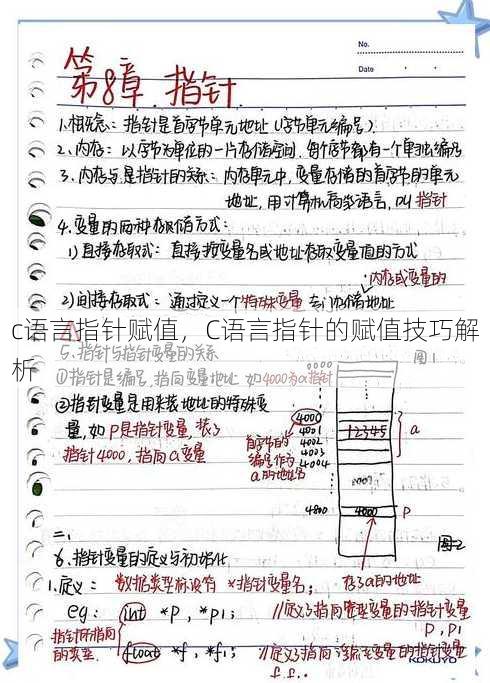 No.
Date
第8章 指针
1.概念：指针是首字节单元地址（字节单元编号）
2、内存：以字节为单位的一片存储空间，每个字节都有一个单独编号
3、内存与是指针的关系：内存单元中，变量存储的首字节的单元
地址，用计算机高类语言，叫指针
4.变量的两种存取储方式：
1)直接存取式：直接按变量名或地址存取变量值的方式
内存或变量的
2)间接存取式：通过定义一个特殊变量去存储地址
c语言指针赋值，C语言指针的赋值技巧解
析
5.指针与指针变量的关系
图1
①指针是编号，指向变量地址 如4000为a指针
②指针变量是用来装地址的特殊变
量，如P是指针变量，装了
指针4000，指向a变量
4000
4001
4002
4003
4004
首字节的
编号作为
a的地址名
12345
a
4800
4000
P
图2
二、
6.指针变量的定义与初始化
1.定义：数据类型标识符 *指针变量名；存了a的地址
eg: int *p, *p1; //定义了指向整型变量的指针变量
P, P1
指针所指向
的类型.
float *f, *f1; //定义了指向浮点变量的指针变量
f. f..
KOKUYO